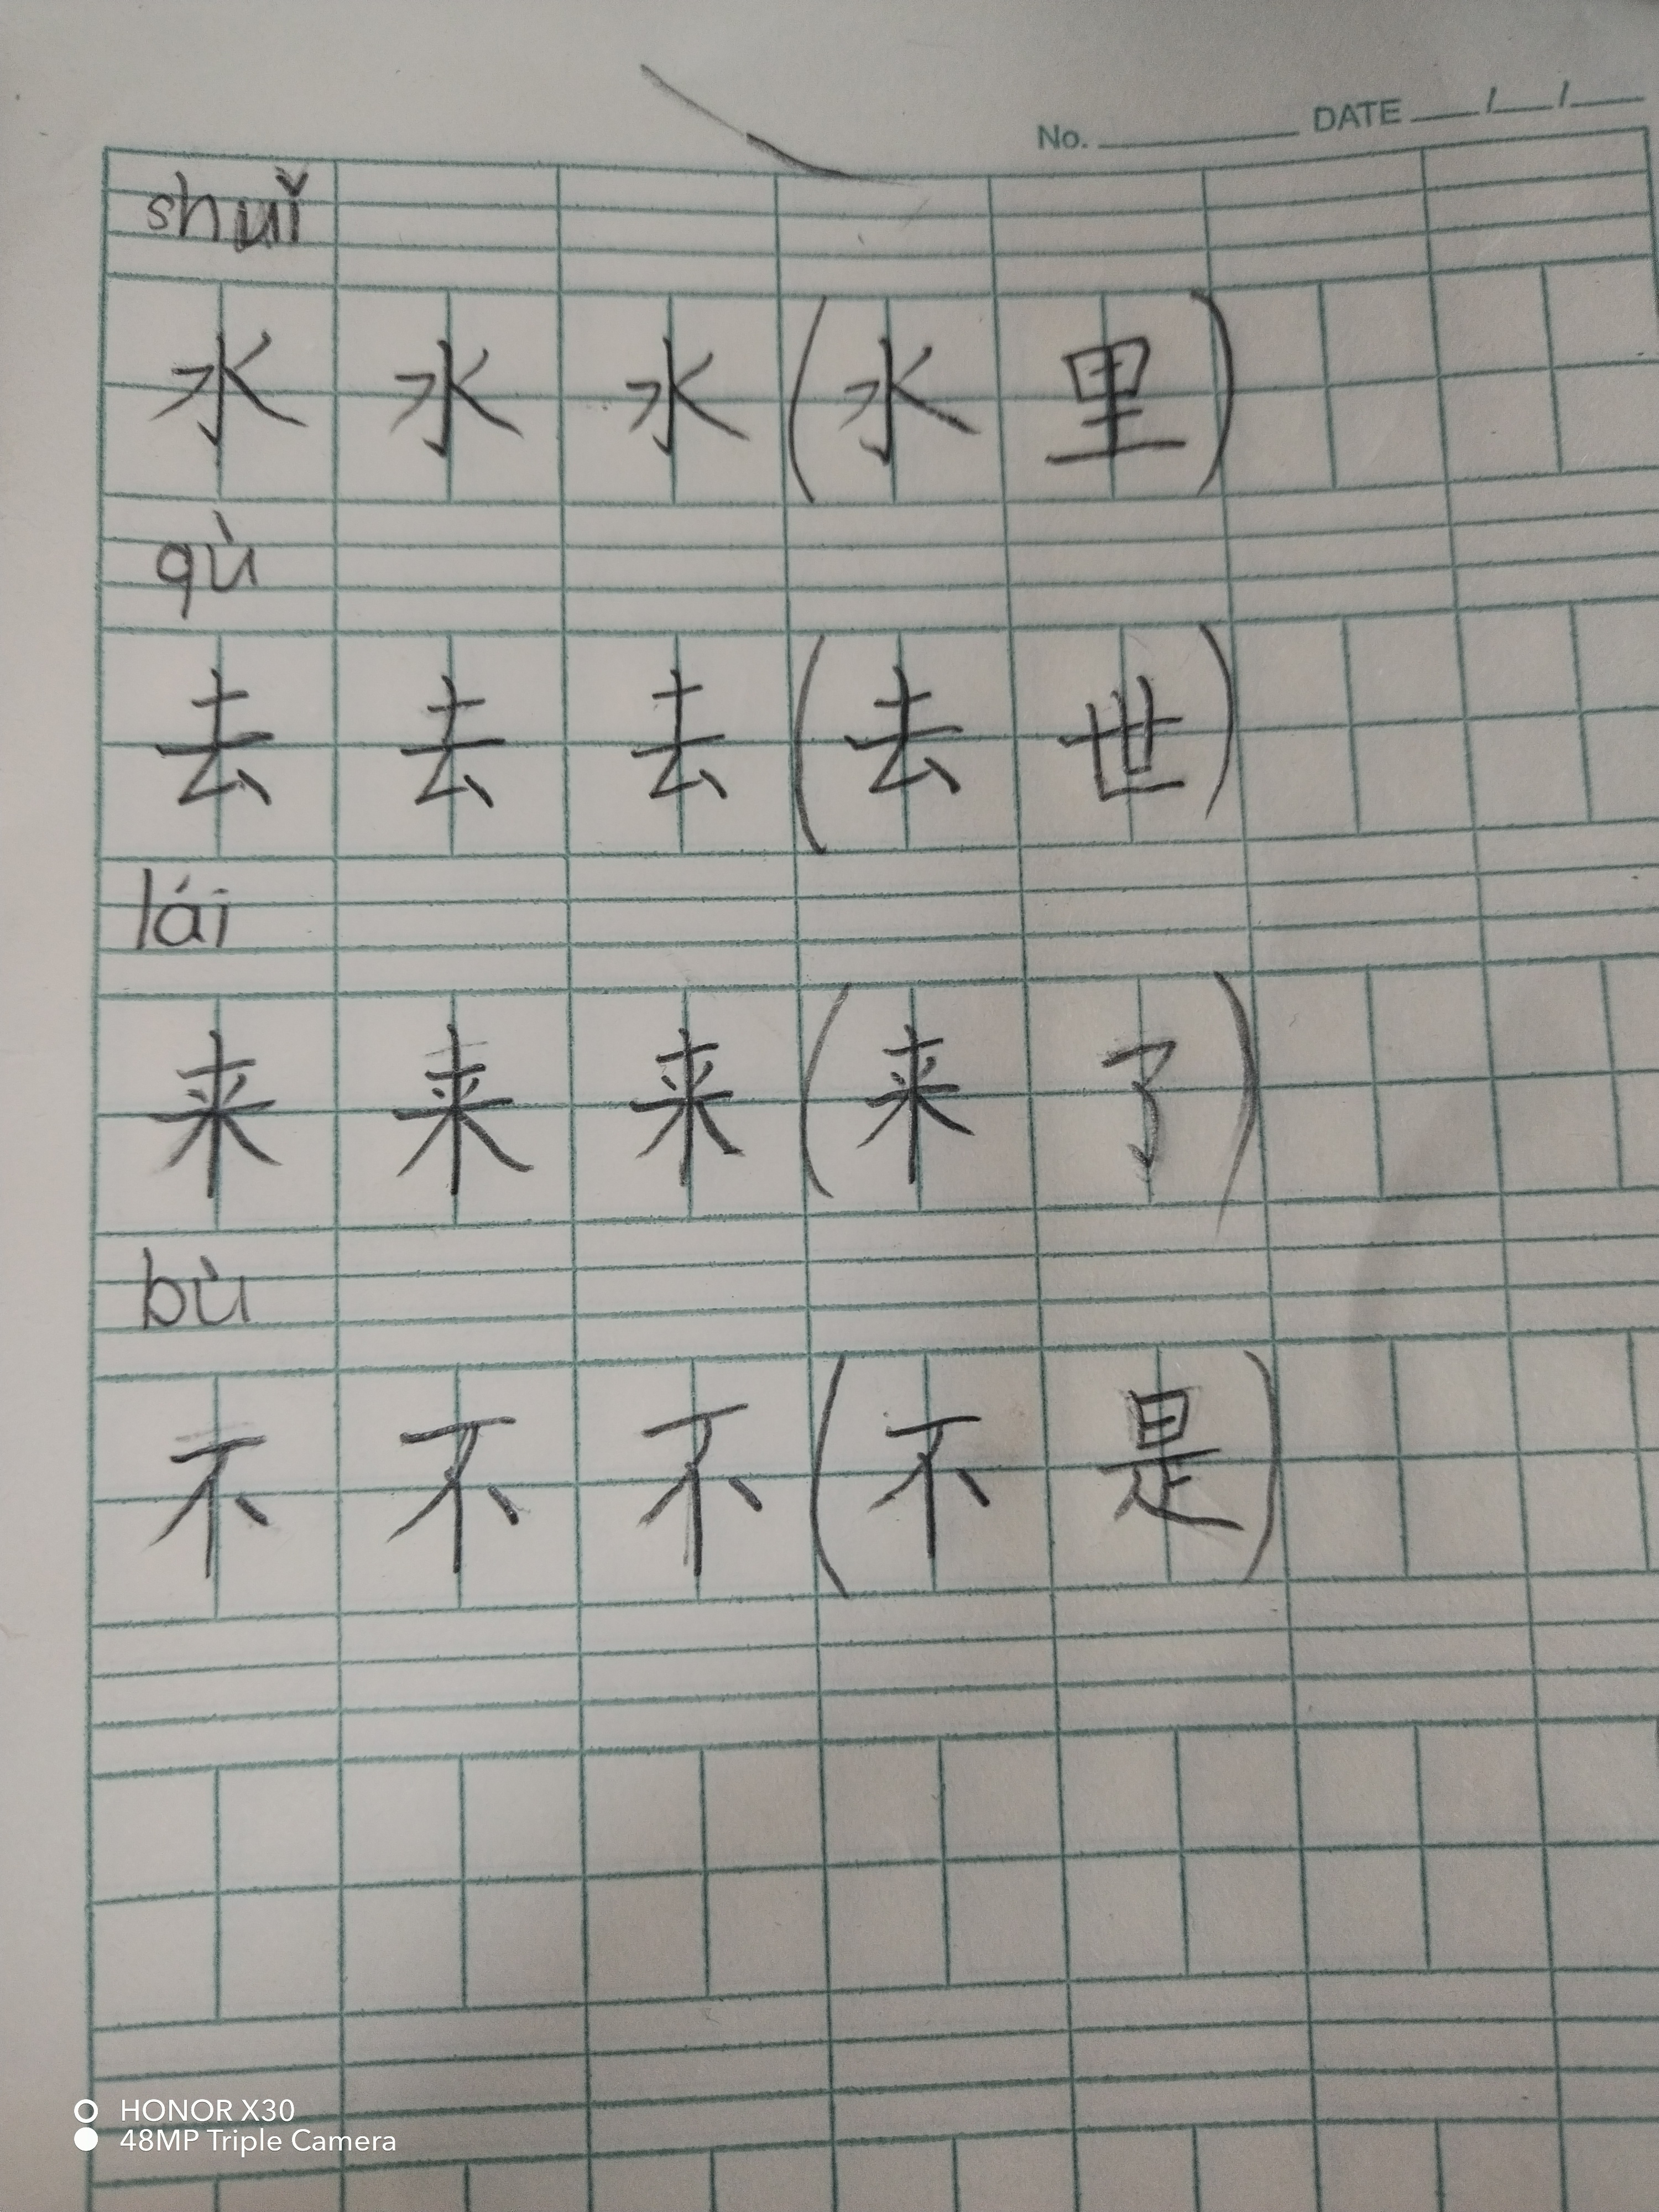 No. DATE / /
shuǐ
水 水 水 (水 里)
qù
去 去 去 (去 世)
lái
来 来 来 (来 了)
bù
不 不 不 (不 是)
HONOR X30
48MP Triple Camera